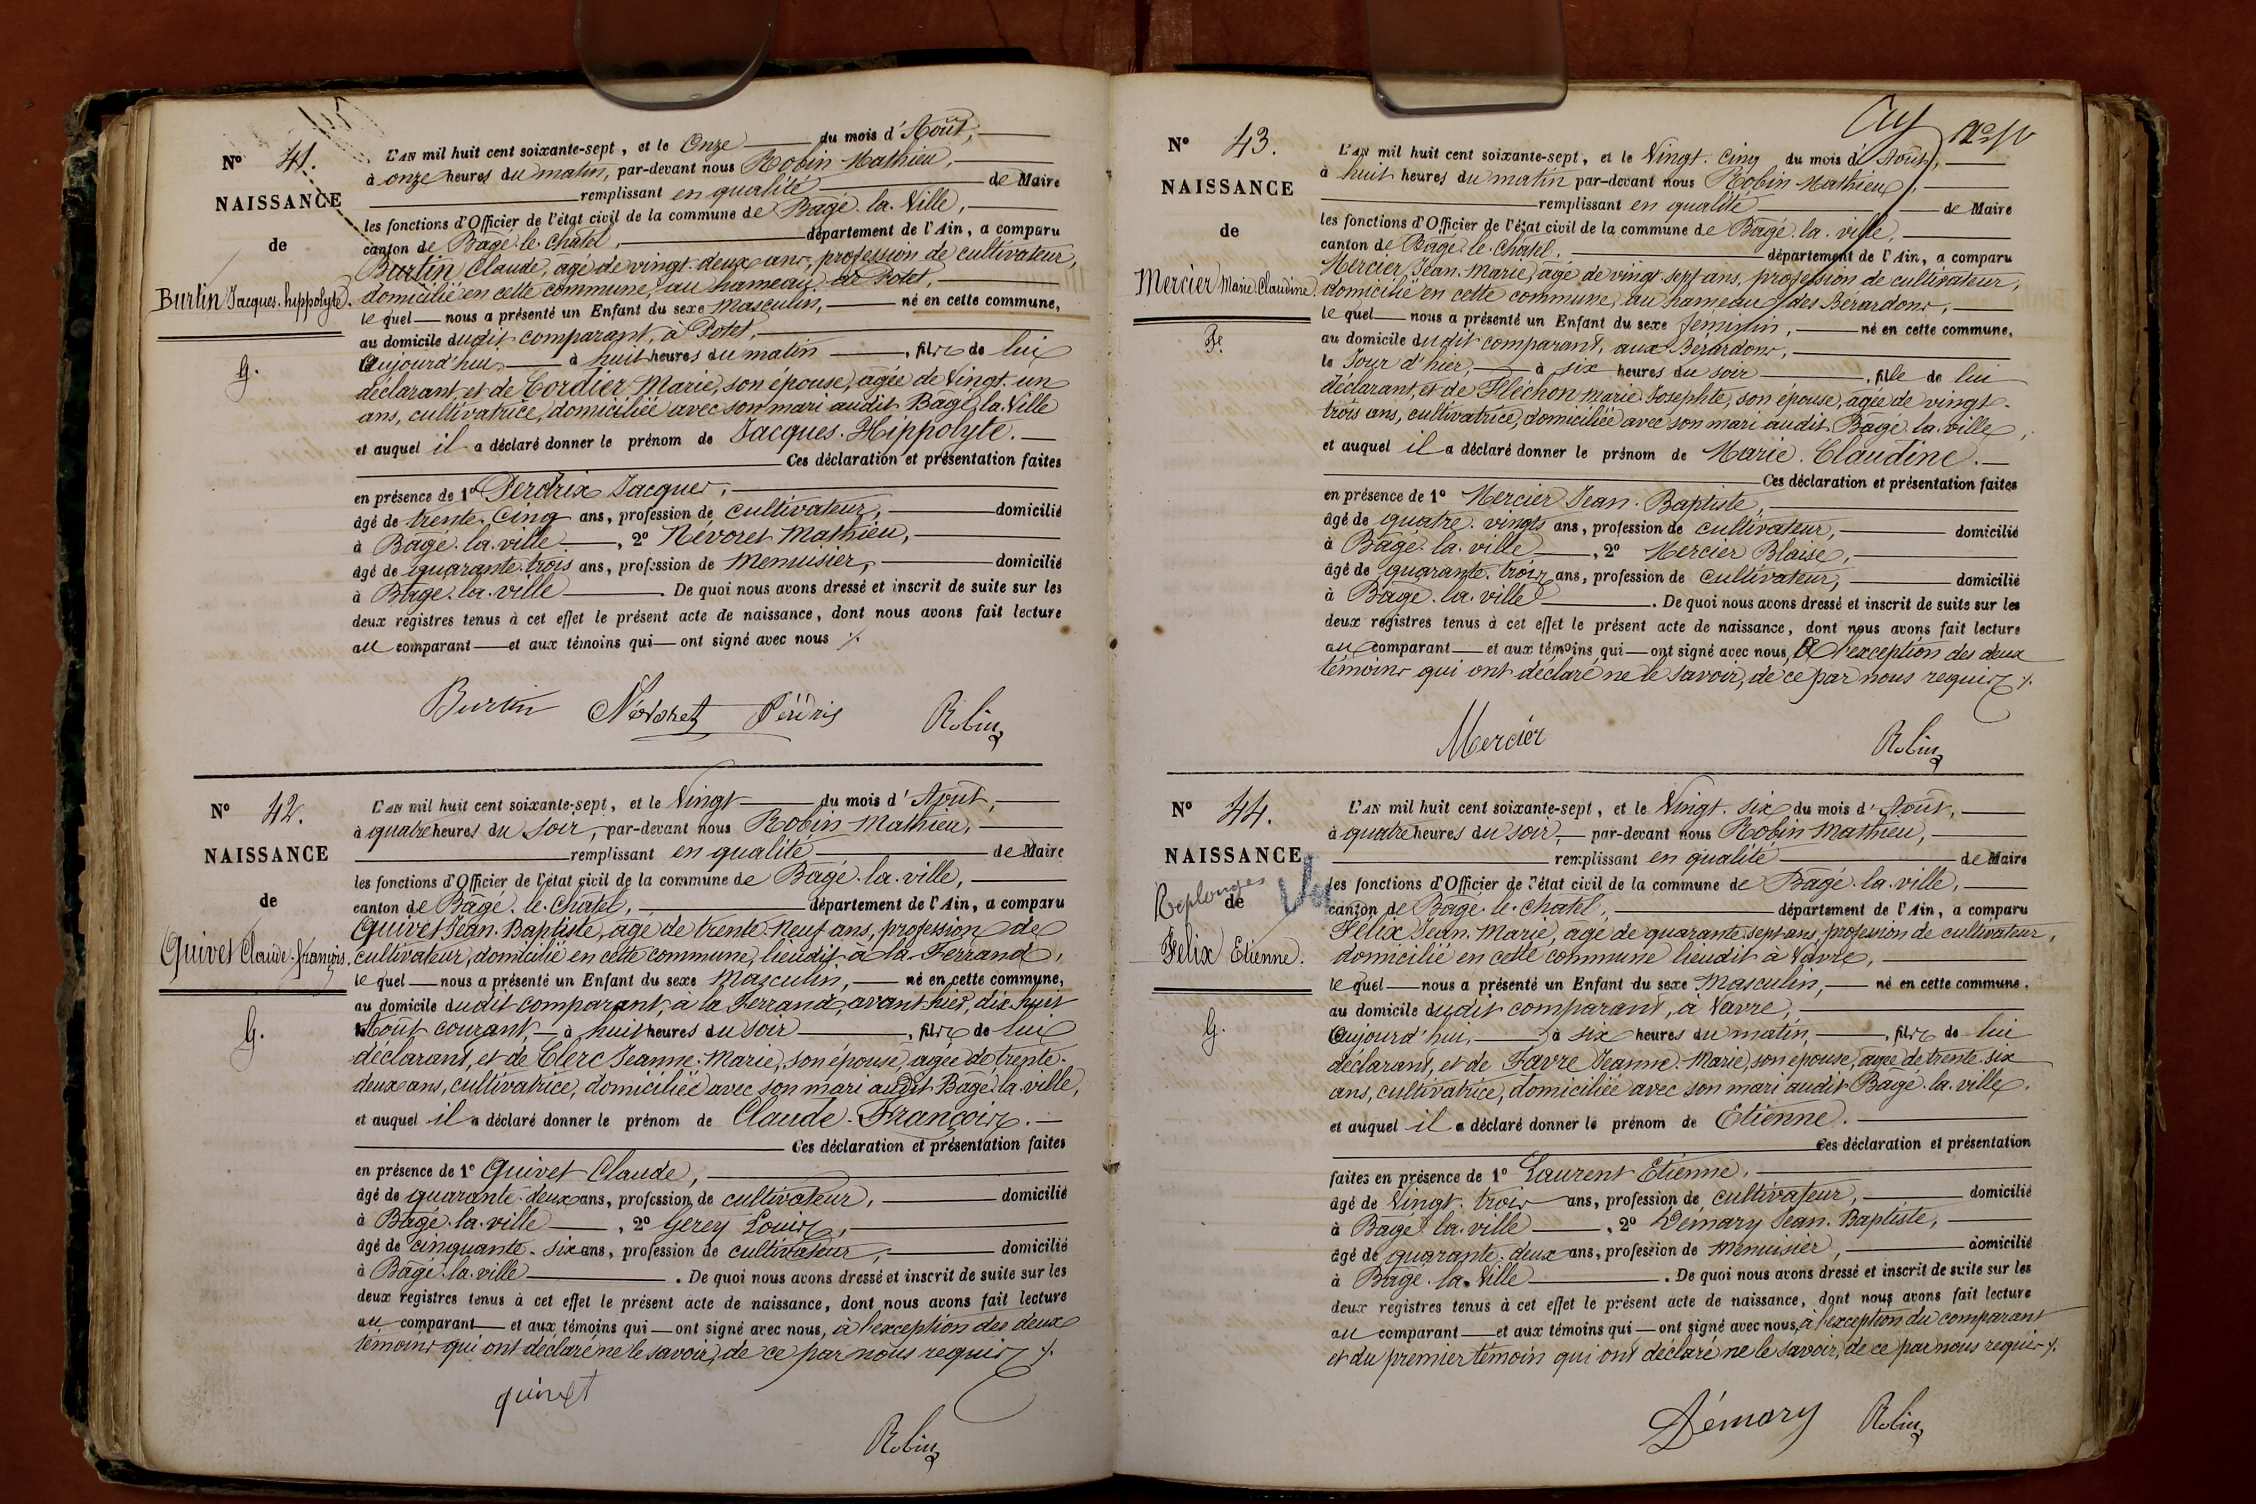 N° 41.
NAISSANCE
de
Burtin Jacques. hippolyte.
G.
L'AN mil huit cent soixante-sept, et le Onze du mois d'Août,
à onze heures du matin, par-devant nous Robin Mathieu,
remplissant en qualité de Maire
les fonctions d'Officier de l'état civil de la commune de Bâgé. la. Ville,
canton de Bâgé. le. Châtel, département de l'Ain, a comparu
Burtin Claude, âgé de vingt. deux ans, profession de cultivateur,
domicilié en cette commune, au hameau de Potet,
le quel nous a présenté un Enfant du sexe Masculin, né en cette commune,
au domicile dudit comparant, à Potet,
Aujourd'hui, à huit heures du matin, fils de lui
déclarant, et de Cordier Marie, son épouse, âgée de Vingt. un
ans, cultivatrice, domiciliée avec son mari audit Bâgé. la. Ville
et auquel il a déclaré donner le prénom de Jacques. Hippolyte.
Ces déclaration et présentation faites
en présence de 1° Perdrix Jacques,
âgé de trente. Cinq ans, profession de cultivateur, domicilié
à Bâgé. la. ville, 2° Névoret Mathieu,
âgé de quarante. trois ans, profession de Menuisier, domicilié
à Bâgé. la. ville. De quoi nous avons dressé et inscrit de suite sur les
deux registres tenus à cet effet le présent acte de naissance, dont nous avons fait lecture
au comparant et aux témoins qui ont signé avec nous ./.
Burtin Névoret Robin
N° 42.
NAISSANCE
de
Quivet Claude. françois.
G.
L'AN mil huit cent soixante-sept, et le Vingt du mois d'Août,
à quatre heures du soir, par-devant nous Robin Mathieu,
remplissant en qualité de Maire
les fonctions d'Officier de l'état civil de la commune de Bâgé. la. ville,
canton de Bâgé. le. Châtel, département de l'Ain, a comparu
Quivet Jean. Baptiste, âgé de trente. Neuf ans, profession de
cultivateur, domicilié en cette commune, lieudit à la Ferrand,
le quel nous a présenté un Enfant du sexe Masculin, né en cette commune,
au domicile dudit comparant, à la Ferrand, avant hier, dix huit
Août courant, à huit heures du soir, fils de lui
déclarant, et de Clerc Jeanne. Marie, son épouse, âgée de trente.
deux ans, cultivatrice, domiciliée avec son mari audit Bâgé. la. ville,
et auquel il a déclaré donner le prénom de Claude. François.
Ces déclaration et présentation faites
en présence de 1° Quivet Claude,
âgé de quarante. deux ans, profession de cultivateur, domicilié
à Bâgé. la. ville, 2° Gerey Louis,
âgé de cinquante. six ans, profession de cultivateur, domicilié
à Bâgé. la. ville. De quoi nous avons dressé et inscrit de suite sur les
deux registres tenus à cet effet le présent acte de naissance, dont nous avons fait lecture
au comparant et aux témoins qui ont signé avec nous, à l'exception des deux
témoins qui ont déclaré ne le savoir, de ce par nous requis ./.
quivet
Robin
N° 43.
NAISSANCE
de
Mercier Marie Claudine.
Fe.
L'AN mil huit cent soixante-sept, et le Vingt. Cinq du mois d'Août,
à huit heures du matin par-devant nous Robin Mathieu,
remplissant en qualité de Maire
les fonctions d'Officier de l'état civil de la commune de Bâgé. la. ville,
canton de Bâgé. le. Châtel, département de l'Ain, a comparu
Mercier Jean. Marie, âgé de vingt. sept ans, profession de cultivateur,
domicilié en cette commune, au hameau des Bérardons,
le quel nous a présenté un Enfant du sexe féminin, né en cette commune,
au domicile dudit comparant, aux Bérardons,
le Jour d'hier, à six heures du soir, fille de lui
déclarant, et de Fléchon Marie Josephte, son épouse, âgée de vingt.
trois ans, cultivatrice, domiciliée avec son mari audit Bâgé. la. ville,
et auquel il a déclaré donner le prénom de Marie. Claudine.
Ces déclaration et présentation faites
en présence de 1° Mercier Jean. Baptiste,
âgé de quatre. vingts ans, profession de cultivateur, domicilié
à Bâgé. la. ville, 2° Mercier Blaise,
âgé de quarante. trois ans, profession de cultivateur, domicilié
à Bâgé. la. ville. De quoi nous avons dressé et inscrit de suite sur les
deux registres tenus à cet effet le présent acte de naissance, dont nous avons fait lecture
au comparant et aux témoins qui ont signé avec nous, à l'exception des deux
témoins qui ont déclaré ne le savoir, de ce par nous requis ./.
Mercier Robin
N° 44.
NAISSANCE
Replonges
de
Félix Etienne.
G.
L'AN mil huit cent soixante-sept, et le Vingt. six du mois d'Août,
à quatre heures du soir, par-devant nous Robin Mathieu,
remplissant en qualité de Maire
les fonctions d'Officier de l'état civil de la commune de Bâgé. la. ville,
canton de Bâgé. le. Châtel, département de l'Ain, a comparu
Félix Jean. Marie, âgé de quarante. sept ans, profession de cultivateur,
domicilié en cette commune lieudit à Vavre,
le quel nous a présenté un Enfant du sexe Masculin, né en cette commune,
au domicile dudit comparant, à Vavre,
Aujourd'hui, à six heures du matin, fils de lui
déclarant, et de Favre Jeanne. Marie, son épouse, âgée de trente. six
ans, cultivatrice, domiciliée avec son mari audit Bâgé. la. ville.
et auquel il a déclaré donner le prénom de Etienne.
Ces déclaration et présentation
faites en présence de 1° Laurent Etienne,
âgé de Vingt. trois ans, profession de cultivateur, domicilié
à Bâgé. la. ville, 2° Démary Jean. Baptiste,
âgé de quarante. deux ans, profession de Menuisier, domicilié
à Bâgé. la. Ville. De quoi nous avons dressé et inscrit de suite sur les
deux registres tenus à cet effet le présent acte de naissance, dont nous avons fait lecture
au comparant et aux témoins qui ont signé avec nous, à l'exception du comparant
et du premier témoin qui ont déclaré ne le savoir, de ce par nous requis ./.
Démary Robin